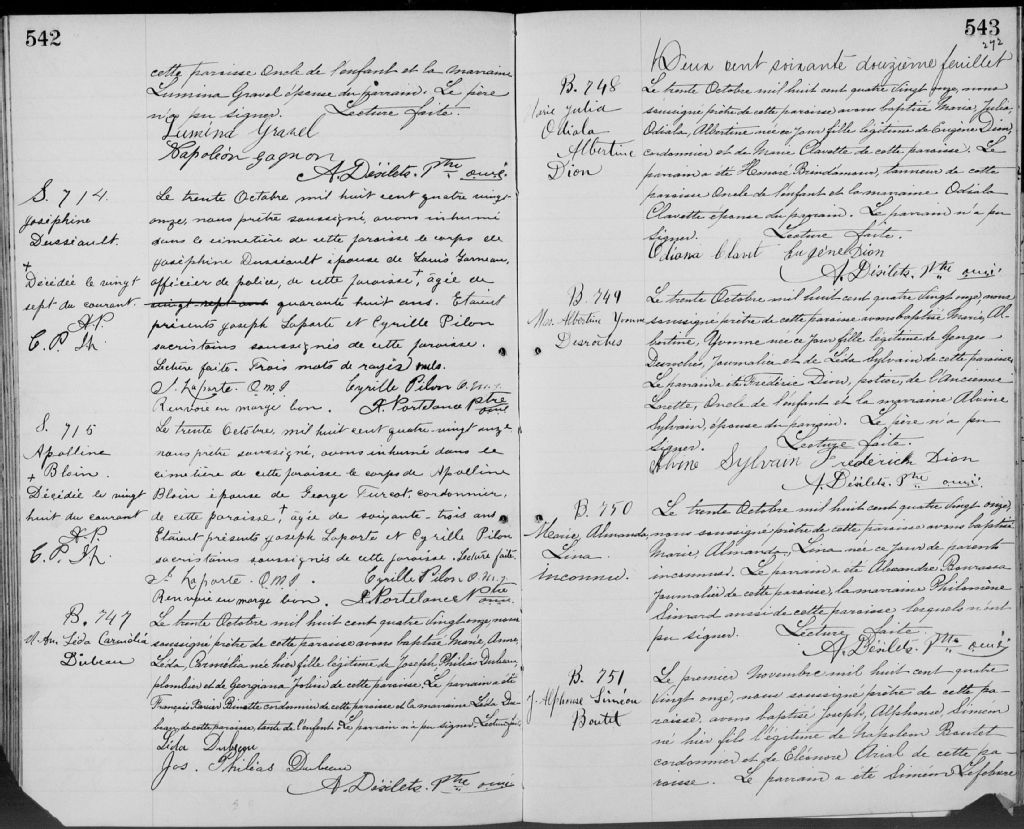 542
cette paroisse Oncle de l'enfant et la marraine
Lumina Gravel épouse du parrain. Le père
n'a pu signer. Lecture faite.
Lumina Gravel
Napoléon Gagnon
A. Désilets. Ptre curé.
S. 714.
Joséphine
Dusséault.
+
Décédée le vingt
sept du courant.
A.P.
C. P. Jh.
Le trente Octobre mil huit cent quatre vingt
onze, nous prêtre soussigné, avons inhumé
dans le cimetière de cette paroisse le corps de
Joséphine Dusséault épouse de Louis Garneau,
officier de police, de cette paroisse,+ âgée de
vingt sept ans quarante huit ans. Etaient
présents Joseph Laporte et Cyrille Pilon
sacristains soussignés de cette paroisse.
Lecture faite. Trois mots de rayés nuls.
J. Laporte. O.M.I Cyrille Pilon O.M.I.
Renvoie en marge bon. A. Portelance Ptre
curé
S. 715
Apolline
+ Blois.
Décédée le vingt
huit du courant
A.P.
C. P. Jh.
Le trente Octobre, mil huit cent quatre-vingt onze
nous prêtre soussigné, avons inhumé dans le
cimetière de cette paroisse le corps de Apolline
Blois épouse de George Turcot, cordonnier,
de cette paroisse,+ âgée de soixante-trois ans
Etaient présents Joseph Laporte et Cyrille Pilon
sacristains soussignés de cette paroisse. Lecture faite.
J. Laporte. O.M.I. Cyrille Pilon O.M.I
Renvoie en marge bon. A. Portelance Ptre
curé.
B. 747
M. An. Léda Carmélia
Dubeau
Le trente Octobre mil huit cent quatre vingt onze, nous
soussigné prêtre de cette paroisse avons baptisé Marie, Anne,
Léda, Carmélia née hier fille légitime de Joseph, Philias Dubeau,
plombier et de Georgiana Jobin de cette paroisse. Le parrain a été
François Xavier cordonnier de cette paroisse et la marraine Léda Du-
beau, de cette paroisse, tante de l'enfant. Le parrain n'a pu signer. Lecture faite.
Léda Dubeau
Jos. Philias Dubeau
A. Désilets. Ptre curé
543
272
Deux cent soixante douzième feuillet
B. 748
Marie Julia
Odiala
Albertine
Dion
Le trente Octobre mil huit cent quatre vingt onze, nous
soussigné prêtre de cette paroisse avons baptisé Marie, Julia,
Odiala, Albertine née ce jour fille légitime de Eugène Dion,
cordonnier et de Marie Clavette de cette paroisse. Le
parrain a été Honoré Brindamour, tanneur de cette
paroisse Oncle de l'enfant et la marraine Odiala
Clavette épouse du parrain. Le parrain n'a pu
signer. Lecture faite.
Odiana Clavet Eugène Dion
A. Désilets. Ptre curé
B. 749
Mar. Albertine Yvonne
Desroches
Le trente Octobre mil huit cent quatre vingt onze, nous
soussigné prêtre de cette paroisse avons baptisé Marie, Al-
bertine, Yvonne née ce jour fille légitime de Georges
Desroches, Journalier et de Léda Sylvain de cette paroisse,
Le parrain a été Frédéric Dion, potier, de l'Ancienne
Lorette, Oncle de l'enfant et la marraine Alvine
Sylvain, épouse du parrain. Le père n'a pu
signer. Lecture faite.
Alvine Sylvain Frédérick Dion
A. Désilets. Ptre curé.
B. 750
Marie, Almanda,
Lina
inconnu.
Le trente Octobre mil huit cent quatre vingt onze,
nous soussigné prêtre de cette paroisse avons baptisé
Marie, Almanda, Lina née ce jour de parents
inconnus. Le parrain a été Alexandre Bourrassa
Journalier de cette paroisse, la marraine Philomène
Simard aussi de cette paroisse lesquels n'ont
pu signer. Lecture faite
A. Désilets. Ptre curé
B. 751
J. Alphonse Siméon
Boutet
Le premier Novembre mil huit cent quatre
vingt onze, nous soussigné prêtre de cette pa-
roisse, avons baptisé Joseph, Alphonse, Siméon
né hier fils légitime de Napoléon Boutet
cordonnier et de Eléonore Arial de cette pa-
roisse. Le parrain a été Siméon Lefebvre